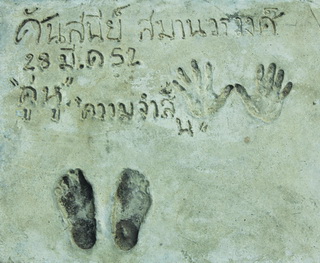 ศันสนีย์ สมานวรวงศ์
28 มี.ค 52
"คู่หู" "ความจำสั้น"